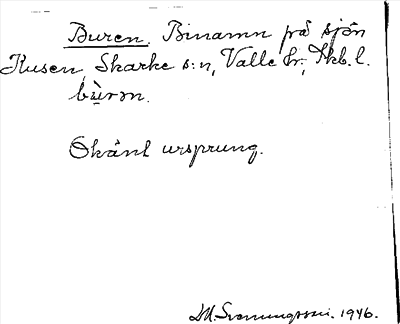 Buren. Binamn på sjön
Kusen, Skarke s:n, Valle hr, Skb. l.
bùrǝn.
Okänt ursprung.
D.M. Svenningsson. 1946.